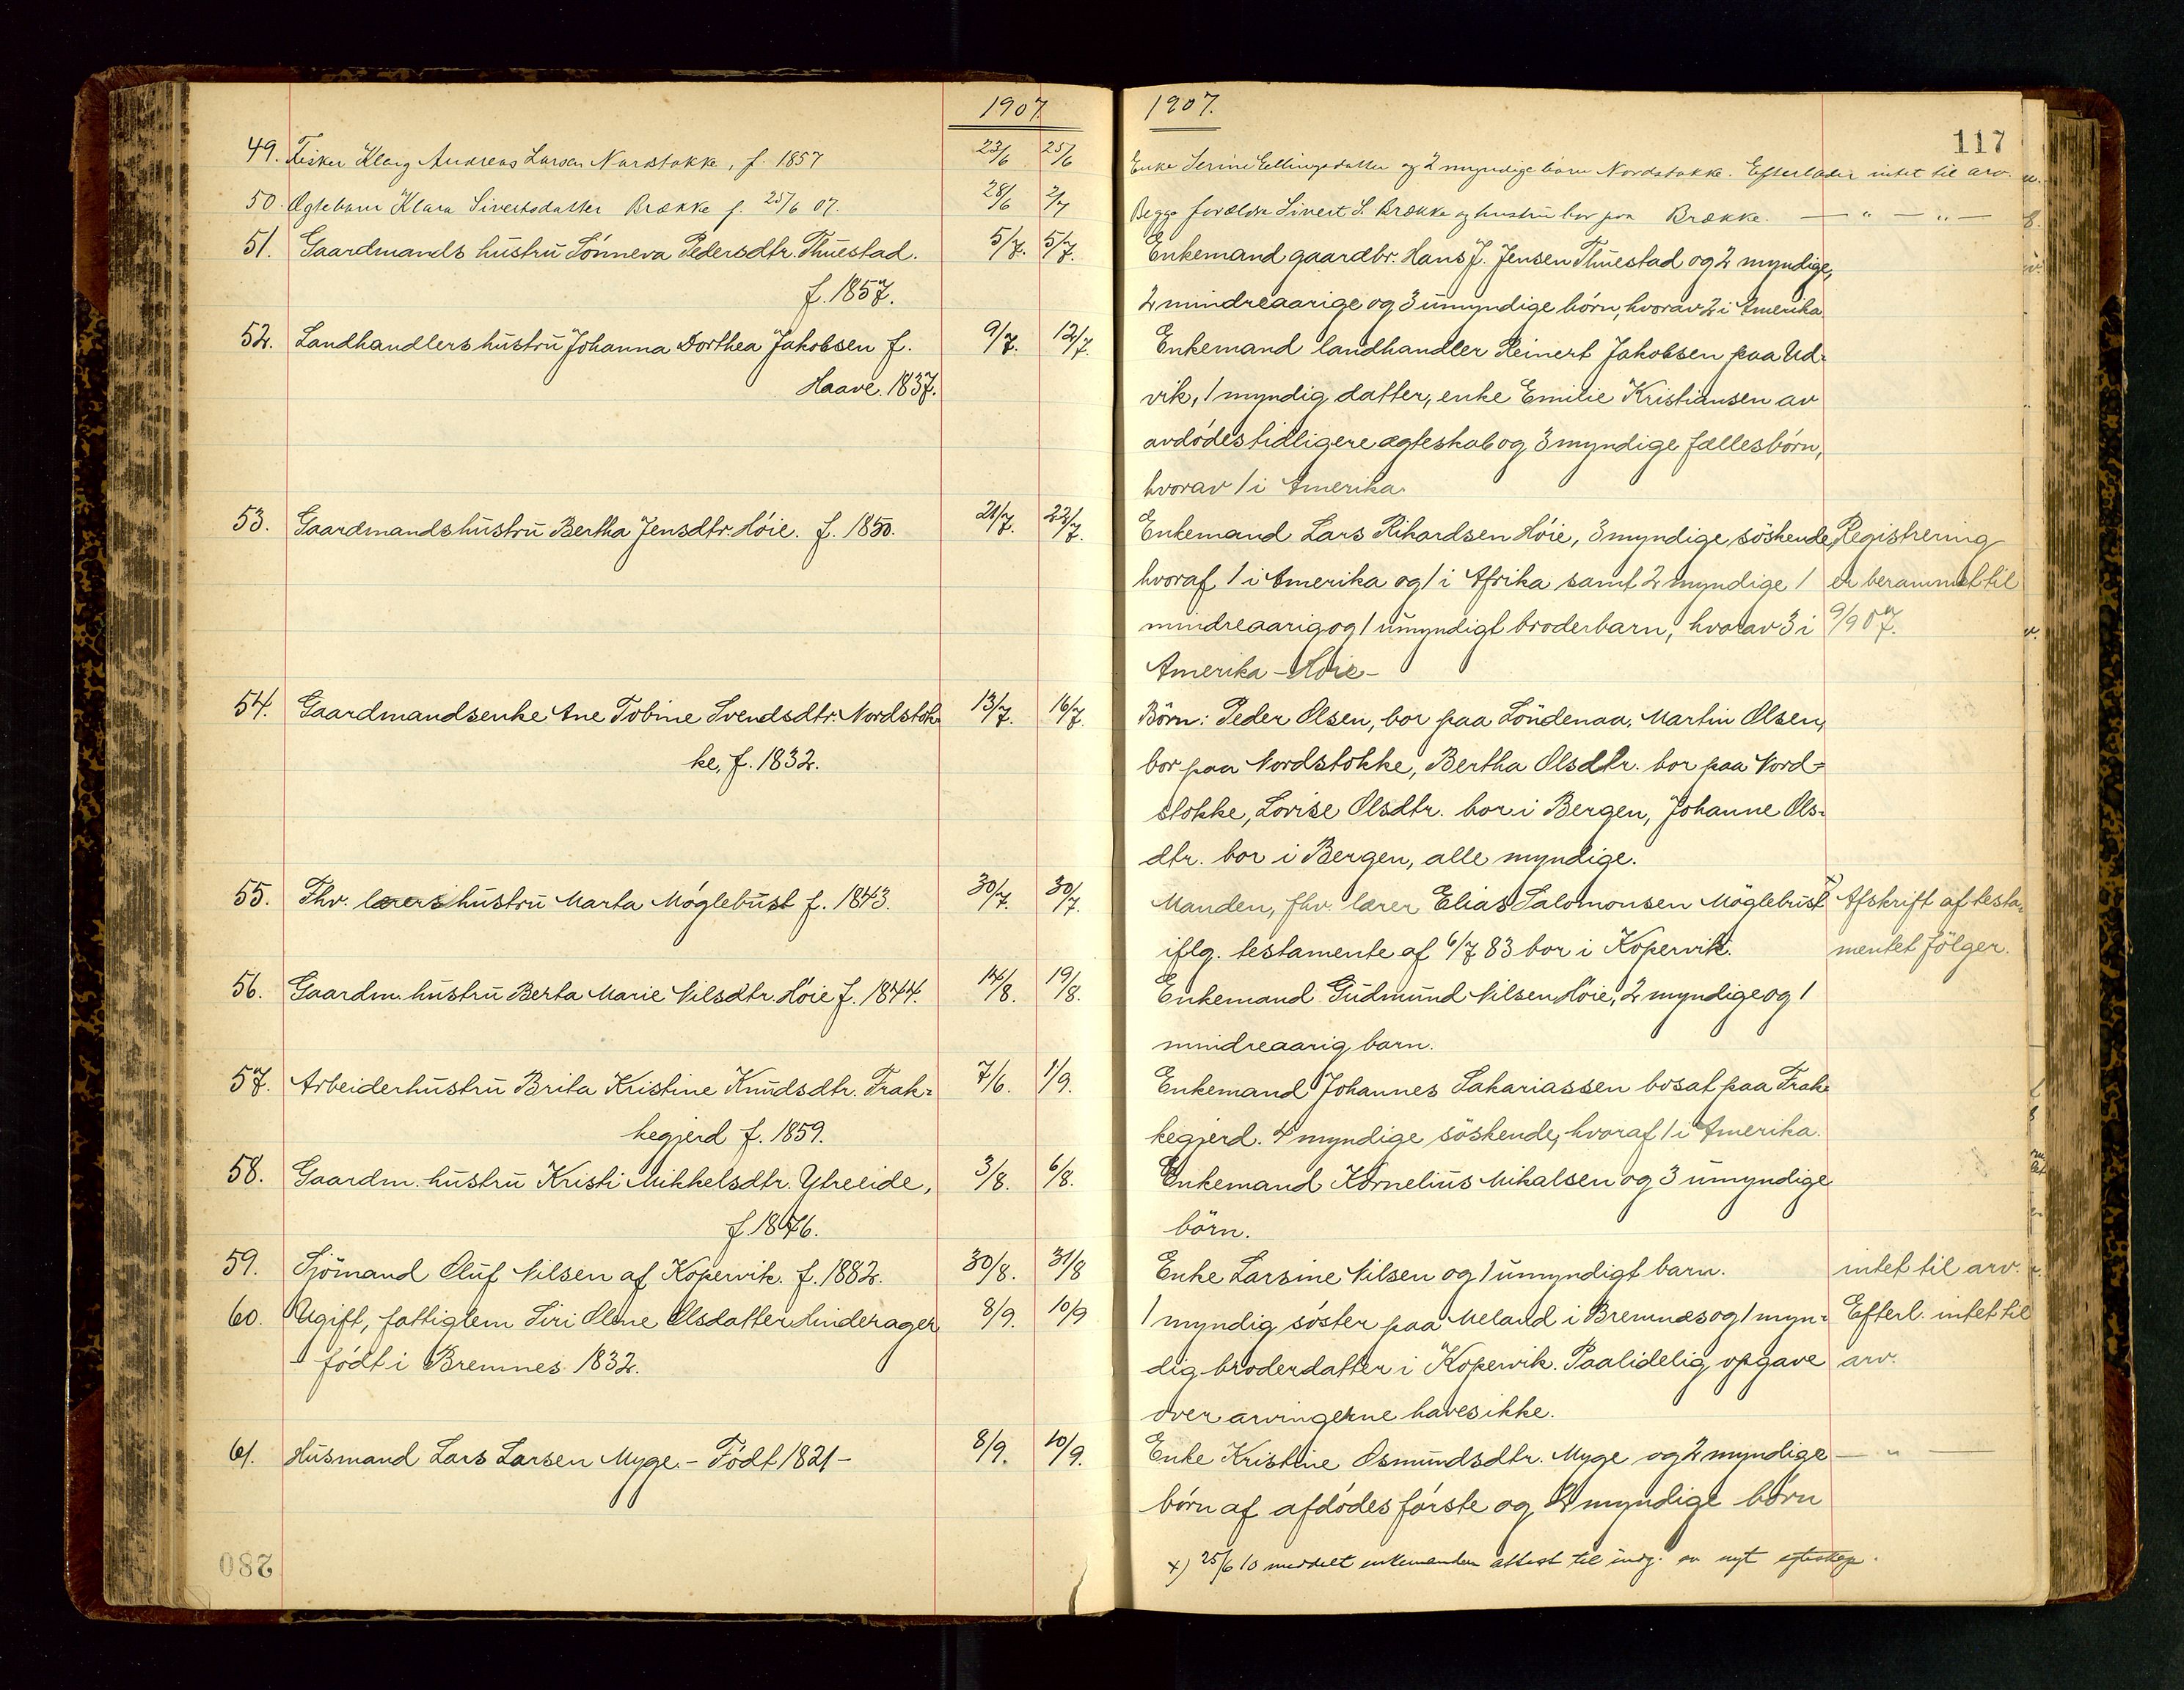 1907.
49. Fisker Klaus Andreas Larsen Nordstokke, f. 1857 23/6 25/6
50. Ægtebarn Klara Sivertsdatter Brække f. 25/6 07. 28/6 2/7
51. Gaardmands hustru Sönneva Pedersdtr. Thuestad. 5/7. 5/7.
f. 1857.
52. Landhandlers hustru Johanna Dorthea Jakobsen f. 9/7. 12/7.
Haave. 1837.
53. Gaardmandshustru Bertha Jensdtr. Höie. f. 1850. 21/7. 22/7.
54. Gaardmandsenke Ane Tobine Svendsdtr. Nordstok= 13/7. 16/7.
ke, f. 1832.
55. Fhv. lærers hustru Marta Möglebust f. 1843. 30/7. 30/7.
56. Gaardm. hustru Berta Marie Nilsdtr. Höie f. 1844. 14/8. 19/8.
57. Arbeiderhustru Brita Kristine Knudsdtr. Frak= 7/6. 1/9.
kegjerd f. 1859.
58. Gaardm. hustru Kristi Mikkelsdtr. Ytreeide, 3/8. 6/8.
f. 1876.
59. Sjömand Oluf Nilsen af Kopervik. f. 1882. 30/8. 31/8
60. Ugift, fattiglem Siri Olene Olsdatter Hinderager 8/9. 10/9
- födt i Bremnes 1832.
61. Husmand Lars Larsen Myge. - Födt 1821 - 8/9. 10/9.
280
1907.
117
Enke Serine Ellingsdatter og 2 myndige börn Nordstokke. Efterlader intet til arv.
Begge forældre Sivert S. Brække og hustru bor paa Brække. — " — " —
Enkemand gaardbr. Hans J. Jensen Thuestad og 2 myndige,
2 mindreaarige og 3 umyndige börn, hvorav 2 i Amerika
Enkemand landhandler Reinert Jakobsen paa Ud=
vik, 1 myndig datter, enke Emilie Kristiansen av
avdödes tidligere ægteskab og 3 myndige fællesbörn,
hvorav 1 i Amerika.
Enkemand Lars Rikardsen Höie, 3 myndige söskende, Registrering
hvoraf 1 i Amerika og 1 i Afrika samt 2 myndige 1 er berammet til
mindreaarig og 1 umyndigt broderbarn, hvorav 3 i 9/9 07.
Amerika - Höie -
Börn: Peder Olsen, bor paa Löndenaa, Martin Olsen,
bor paa Nordstokke, Bertha Olsdtr. bor paa Nord=
stokke, Lovise Olsdtr. bor i Bergen, Johanne Ols=
dtr. bor i Bergen, alle myndige.
Manden, fhv. lærer Elias Salomonsen Möglebust x) Afskrift af testa=
iflg. testamente af 6/7 83 bor i Kopervik. mentet fölger.
Enkemand Gudmund Nilsen Höie, 2 myndige og 1
mindreaarig barn.
Enkemand Johannes Sakariassen bosat paa Frak=
kegjerd. 4 myndige söskende, hvoraf 1 i Amerika.
Enkemand Kornelius Mikalsen og 3 umyndige
börn.
Enke Larsine Nilsen og 1 umyndigt barn. intet til arv.
1 myndig söster paa Meland i Bremnæs og 1 myn= Efterl. intet til
dig broderdatter i Kopervik. Paalidelig opgave arv.
over arvingerne haves ikke.
Enke Kristine Osmundsdtr. Myge og 2 myndige — " —
börn af afdödes förste og 2 myndige börn
x) 25/6 10 meddelt enkemanden attest til indg. av nyt egteskap.